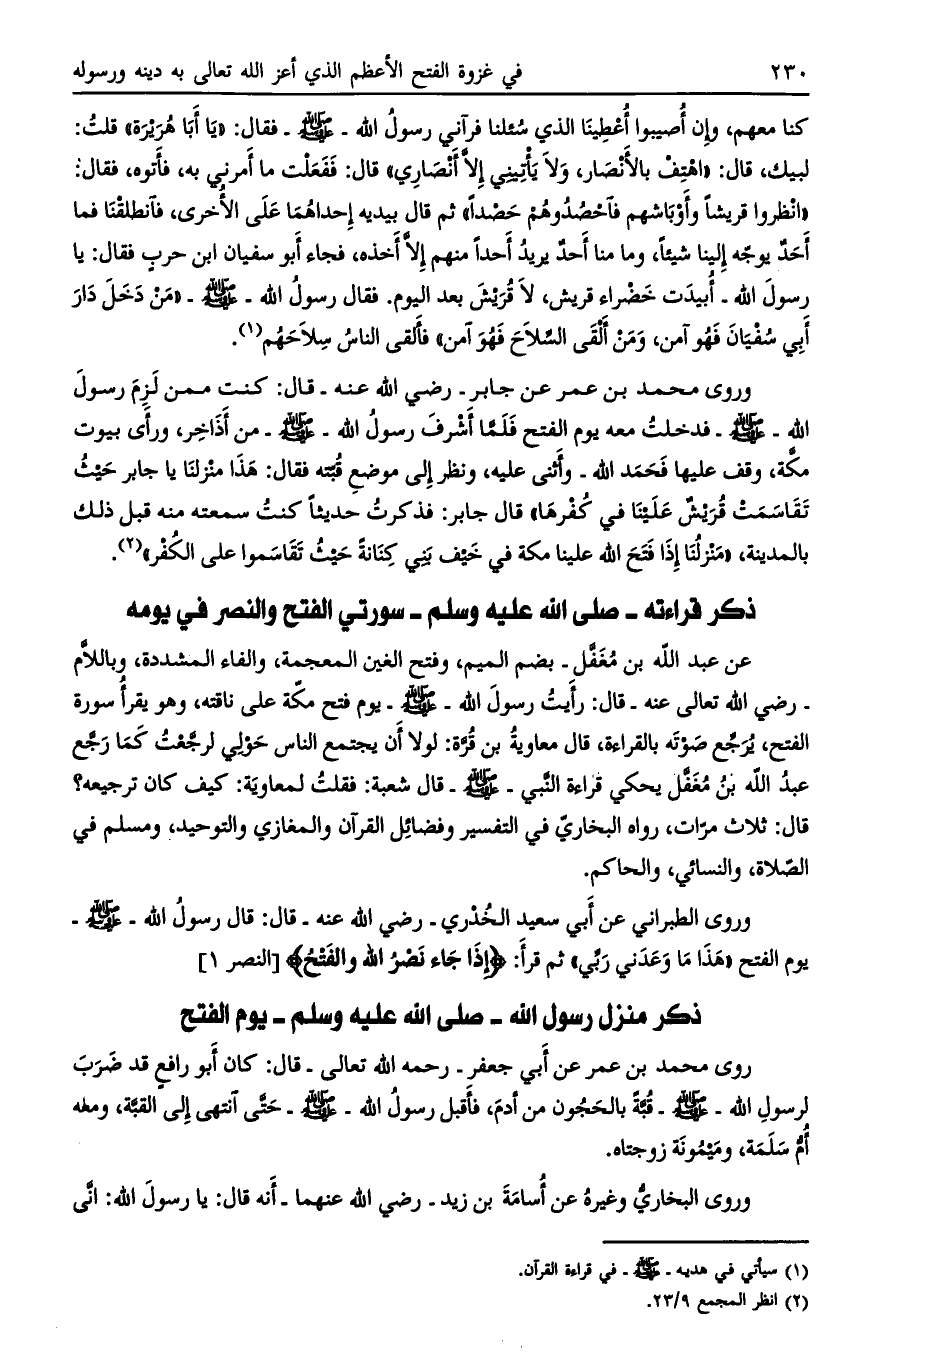 ٢٣٠ في غزوة الفتح الأعظم الذي أعز الله تعالى به دينه ورسوله
كنا معهم، وإن أُصيبوا أُعْطِينَا الذي سُئلنا فرآني رسولُ الله ـ ﷺ ـ فقال: «يَا أَبَا هُرَيْرَة» قلتُ:
لبيك، قال: «اهْتِفْ بالأَنْصار، وَلاَ يَأْتِيني إِلاَّ أَنْصَارِي» قال: فَفَعَلْت ما أمرني به، فأتوه، فقال:
«انْظروا قريشاً وأَوْبَاشهم فَآحْصُدُوهُمْ حَصْداً» ثم قال بيديه إحداهُمَا عَلَى الأُخرى، فآنطلقْنَا فما
أَحَدٌ يوجّه إلينا شيئاً، وما منا أحدٌ يريدُ أحداً منهم إلاَّ أَخذه، فجاء أبو سفيان ابن حربٍ فقال: يا
رسولَ الله ـ أُبيدَت خَضْراء قريش، لاَ قُرَيْشَ بعد اليوم. فقال رسولُ الله ـ ﷺ ـ «مَنْ دَخَلَ دَارَ
أَبِي سُفْيَانَ فَهُو آمن، وَمَنْ أَلْقَى السِّلاَحَ فَهُوَ آمن» فألقى الناسُ سِلاَحَهُم(١).
وروى محمد بن عمر عن جابر ـ رضي الله عنه ـ قال: كنت ممن لَزِمَ رسولَ
الله ـ ﷺ ـ فدخلتُ معه يوم الفتح فَلَمَّا أَشْرفَ رسولُ الله ـ ﷺ ـ من أَذَاخِر، ورأى بيوت
مكَّة، وقف عليها فَحَمَد الله ـ وأثنى عليه، ونظر إلى موضع قُبّته فقال: هَذَا منْزلنَا يا جابر حَيْثُ
تَقَاسَمَتْ قُرَيْشٌ عَلَيْنَا في كُفْرهَا» قال جابر: فذكرتُ حديثاً كنتُ سمعته منه قبل ذلك
بالمدينة، «مَنْزلُنَا إِذَا فَتَحَ الله علينا مكة في خَيْف بَنِي كِنَانةً حَيْثُ تَقَاسَموا على الكُفْر»(٢).
ذكر قراءته ـ صلى الله عليه وسلم ـ سورتي الفتح والنصر في يومه
عن عبد اللَّه بن مُغَفَّل ـ بضم الميم، وفتح الغين المعجمة، والفاء المشددة، وباللأَّم
ـ رضي الله تعالى عنه ـ قال: رأيتُ رسولَ الله ـ ﷺ ـ يوم فتح مكّة على ناقته، وهو يقرأُ سورة
الفتح، يُرَجِّع صَوْتَه بالقراءة، قال معاويةُ بن قُرَّة: لولا أن يجتمع الناس حَوْلِي لرجَّعْتُ كَمَا رَجَّع
عبدُ اللَّه بنُ مُغَفَّل يحكي قراءة النَّبي ـ ﷺ ـ قال شعبة: فقلتُ لمعاويَة: كيف كان ترجيعه؟
قال: ثلاث مرّات، رواه البخاريّ في التفسير وفضائِل القرآن والمغازي والتوحيد، ومسلم في
الصّلاة، والنسائي، والحاكم.
وروى الطبراني عن أبي سعيد الخُدْري ـ رضي الله عنه ـ قال: قال رسولُ الله ـ ﷺ ـ
يوم الفتح «هَذَا مَا وَعَدَني رَبِّي» ثم قرأَ: ﴿إِذَا جَاء نَصْرُ الله والفَتْحُ﴾ [النصر ١]
ذكر منزل رسول الله ـ صلى الله عليه وسلم ـ يوم الفتح
روى محمد بن عمر عن أَبي جعفر ـ رحمه الله تعالى ـ قال: كان أَبو رافعٍ قد ضَرَبَ
لرسولِ الله ـ ﷺ ـ قُبَّةً بالحَجُون من أدمَ، فأَقبل رسولُ الله ـ ﷺ ـ حَتَّى آنتهى إلى القبَّة، ومعَه
أُمُّ سَلَمَة، ومَيْمُونَة زوجتاه.
وروى البخاريُّ وغيرهُ عن أُسامَةَ بن زيد ـ رضي الله عنهما ـ أَنه قال: يا رسولَ الله: انَّى
(١) سيأتي في هديه ـ ﷺ ـ في قراءة القرآن.
(٢) انظر المجمع ٢٣/٩.